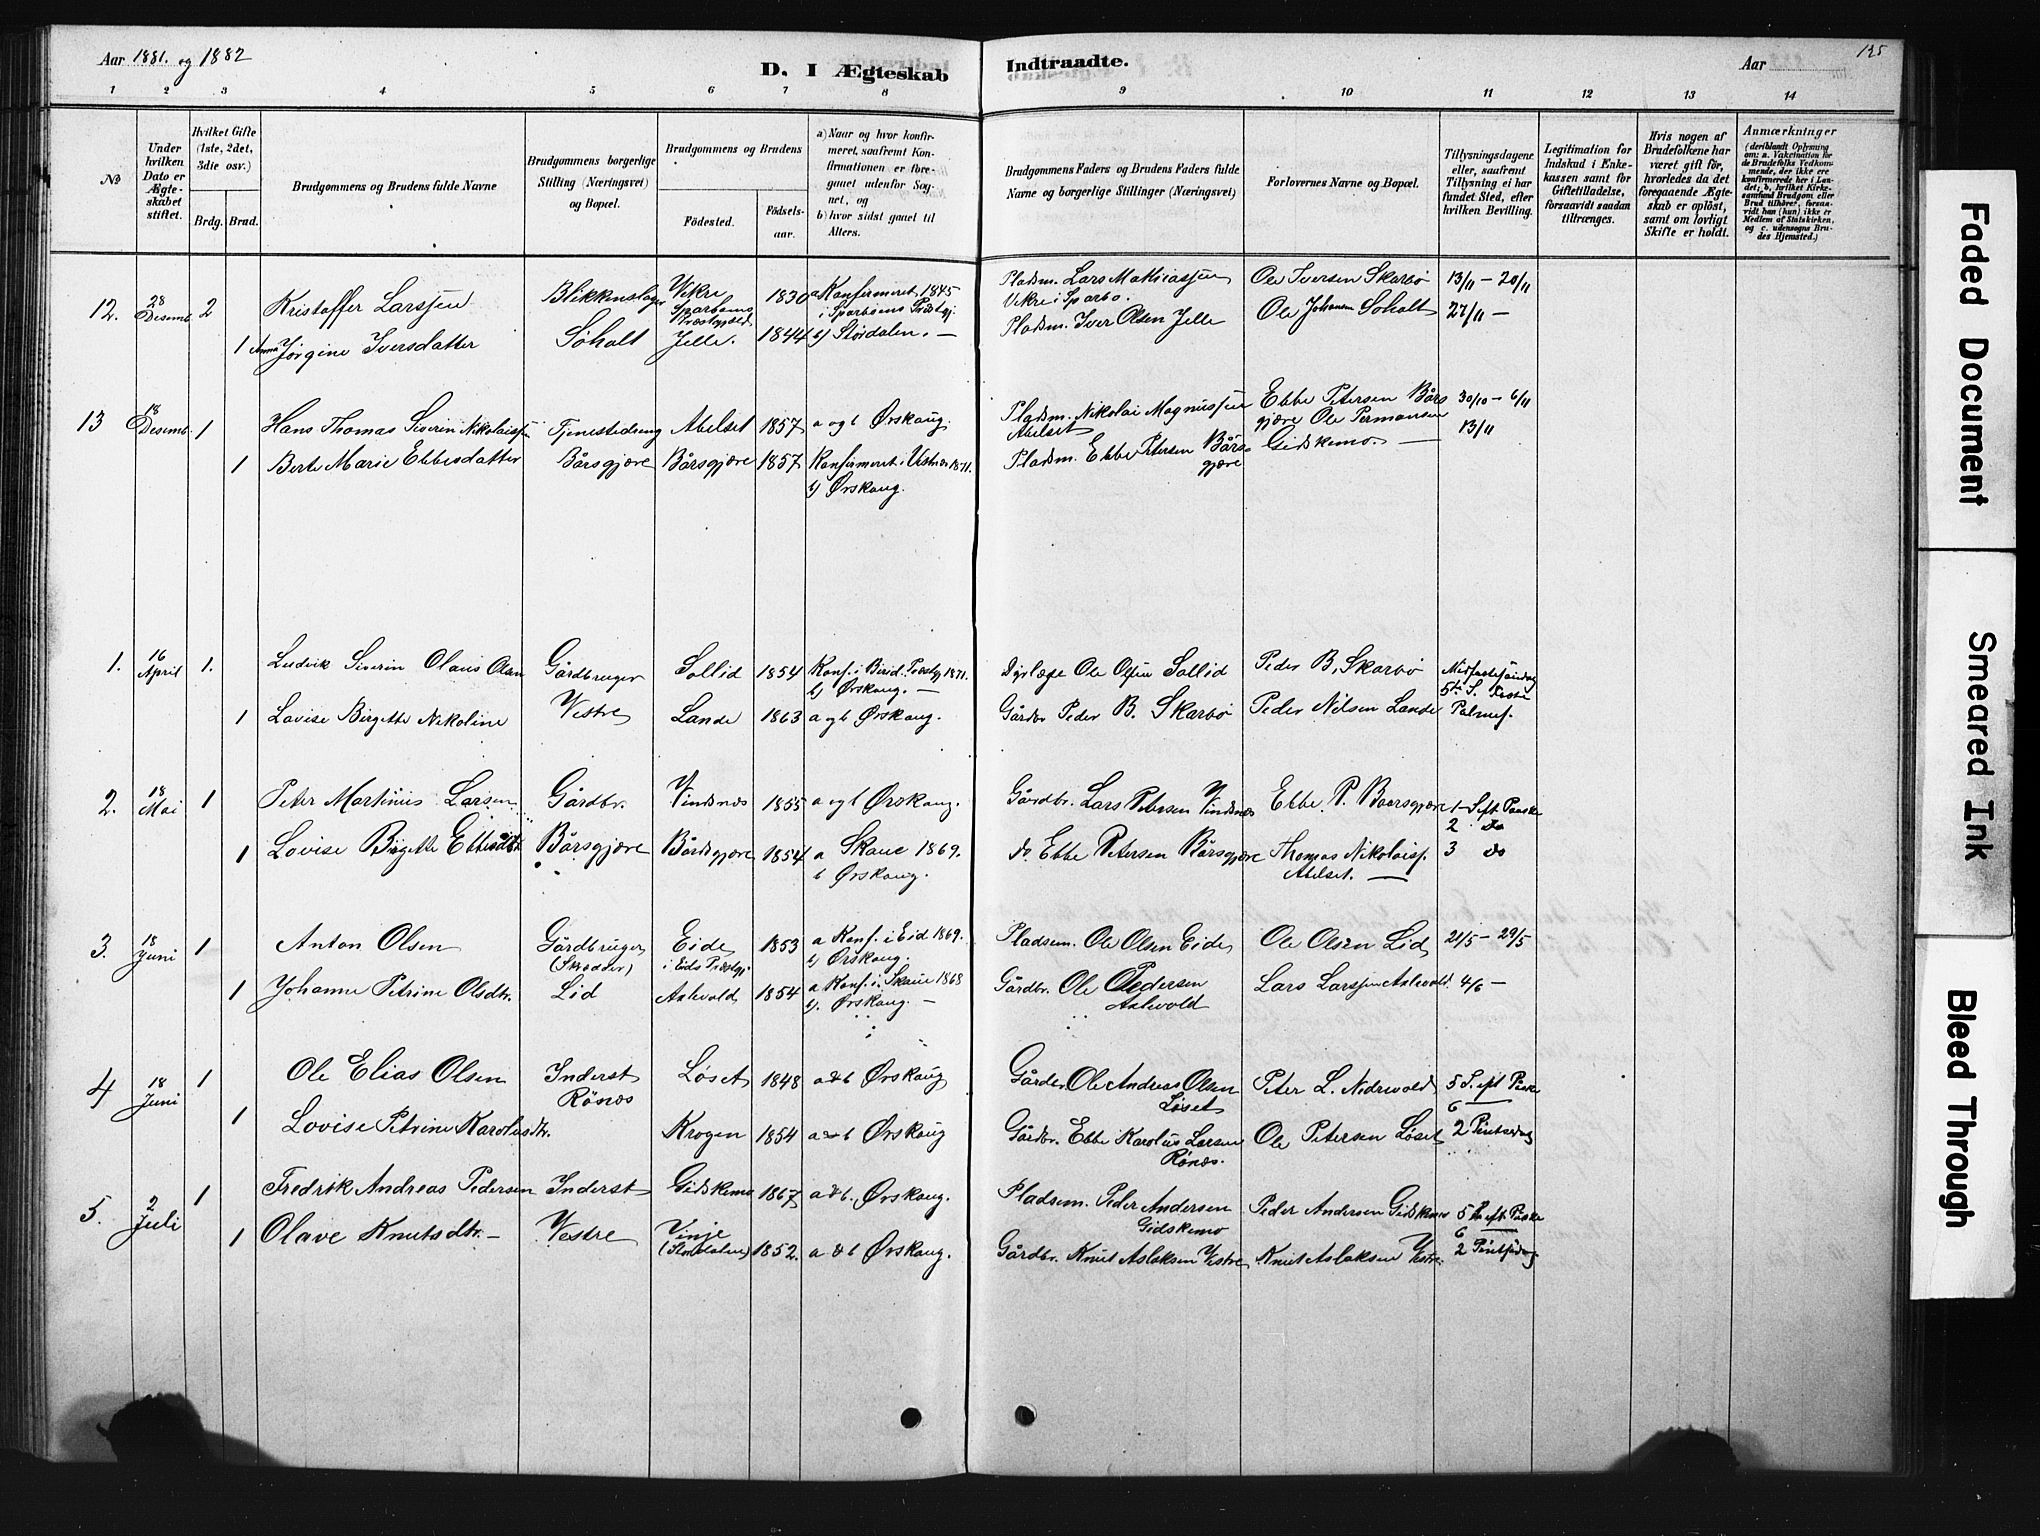 Aar 1881. og 1882
D. I Ægteskab Indtraadte.
Aar
125
1 2 3 4 5 6 7 8 9 10 11 12 13 14
No
Under hvilken Dato er Ægteskabet stiftet.
Hvilket Gifte (1ste, 2det, 3die osv.)
Brdg. Brud.
Brudgommens og Brudens fulde Navne
Brudgommens borgerlige Stilling (Næringsvei) og Bopæl.
Brudgommens og Brudens
Fødested.
Fødselsaar.
a) Naar og hvor konfirmeret, saafremt Konfirmationen er foregaaet udenfor Sognet, og
b) hvor sidst gaaet til Alters.
Brudgommens Faders og Brudens Faders fulde Navne og borgerlige Stillinger (Næringsvei)
Forlovernes Navne og Bopæl.
Tillysningsdagene eller, saafremt Tillysning ei har fundet Sted, efter hvilken Bevilling.
Legitimation for Indskud i Enkekassen samt for Giftetilladelse, forsaavidt saadan tiltrænges.
Hvis nogen af Brudefolkene har været gift før, hvorledes da det foregaaende Ægteskab er opløst, samt om lovligt Skifte er holdt.
Anmærkninger (deriblandt Oplysning om: a. Vakcination for de Brudefolks Vedkommende, der ikke ere konfirmerede her i Landet; b. hvilket Kirkesamfund Brudgom eller Brud tilhører, forsaavidt han (hun) ikke er Medlem af Statskirken, og c. udensogns Brudes Hjemsted.)
12. 28 Desemb. 2 Kristoffer Larssen Blikkenslager Vekre Sparboens Præstegjeld 1830 a Konfirmeret 1845 i Sparboens Prestgj. Pladsm. Lars Mathiassen Vekre i Sparbo. Ole Iversen Skarbø 13/11 – 20/11
1 Anna Jörgine Iversdatter Söholt Jelle. 1844 b) Stordalen. – Pladsm. Iver Olsen Jelle Ole Johansen Soholt 27/11 –
13 18 Desemb. 1 Hans Thomas Siverin Nikolaissen Tjenestedreng Abelset 1857 a og b Ørskoug. Pladsm. Nikolai Magnussen Abelset Ebbe Petersen Bårsgjære Ole Permansen 30/10 – 6/11 13/11
1 Berte Marie Ebbesdatter Bårsgjære Bårsgjære 1857 Konfirmeret i Vestnes 1871. b) Ørskoug. Pladsm. Ebbe Petersen Bårsgjære Gidskemo. –
1. 16 April 1. Ludvik Siverin Olaus Olsen Gårdbruger Sollid 1854 Konf. i Birid. Præstgj 1871. b) Ørskoug. – Dyrlæge Ole Olsen Sollid Peder B. Skarbø Midfastesöndag 5te S. Faste
1 Lovise Birgitte Nikoline Vestre Lande 1863 a og b Ørskoug. Gårdbr Peder B. Skarbø Peder Nilsen Lande Palmes.
2. 18 Mai 1 Peter Martinus Larsen Gårdbr. Vindsnes 1855 a og b Ørskoug. Gårdbr. Lars Petersen Vindsnes Ebbe P. Baarsgjære 1– S eft Paaske 2 do
1 Lovise Birgitte Ebbesdtr Bårsgjære Bårdsgjære 1854 a Skaue 1869. b Ørskoug. do Ebbe Petersen Bårsgjære Thomas Nikolais. Abelset. – 3 do
3. 18 Juni 1 Anton Olsen Gårdbruger (Skrædder) Eide i Eids Præstgj. 1853 a Konf. i Eid 1869. b) Ørskoug. Pladsem. Ole Olsen Eide Ole Olsen Lid 21/5 – 29/5
1 Johanne Petrine Olsdtr. Lid Amlevold 1854 a Konf. i Skaue 1868 b). Ørskoug. – Gårdbr. Ole Pedersen Amlevold Lars Larssen Amlevold. 4/6 –
4 18 Juni 1 Ole Elias Olsen Inderst Rönæs Løset 1848 a & b Ørskoug Gårdbr Ole Andreas Olsen Løset Peter L. Nedrevold 5 S. eft Paaske 6
1 Lovise Petrine Karolusdtr. Krogen 1854 a & b Ørskoug Gårdbr. Ebbe Karolus Larsen Rönæs. Ole Petersen Løset 2 Pintsedag
5. 2 Juli 1 Fredrik Andreas Pedersen Inderst Gidskemo 1867 a & b. Ørskoug. Pladsem. Peder Andersen Gidskemo Peder Andersen Gidskemo 5 S. eft Paaske 6
1 Olave Knutsdtr. – Vestre Vinje (Stordalen) 1852. a & b Ørskoug. Gårdbr. Knut Aslaksen Vestre Knut Aslaksen Vestre. 2 Pintsedag
Faded Document
Smeared Ink
Bleed Through